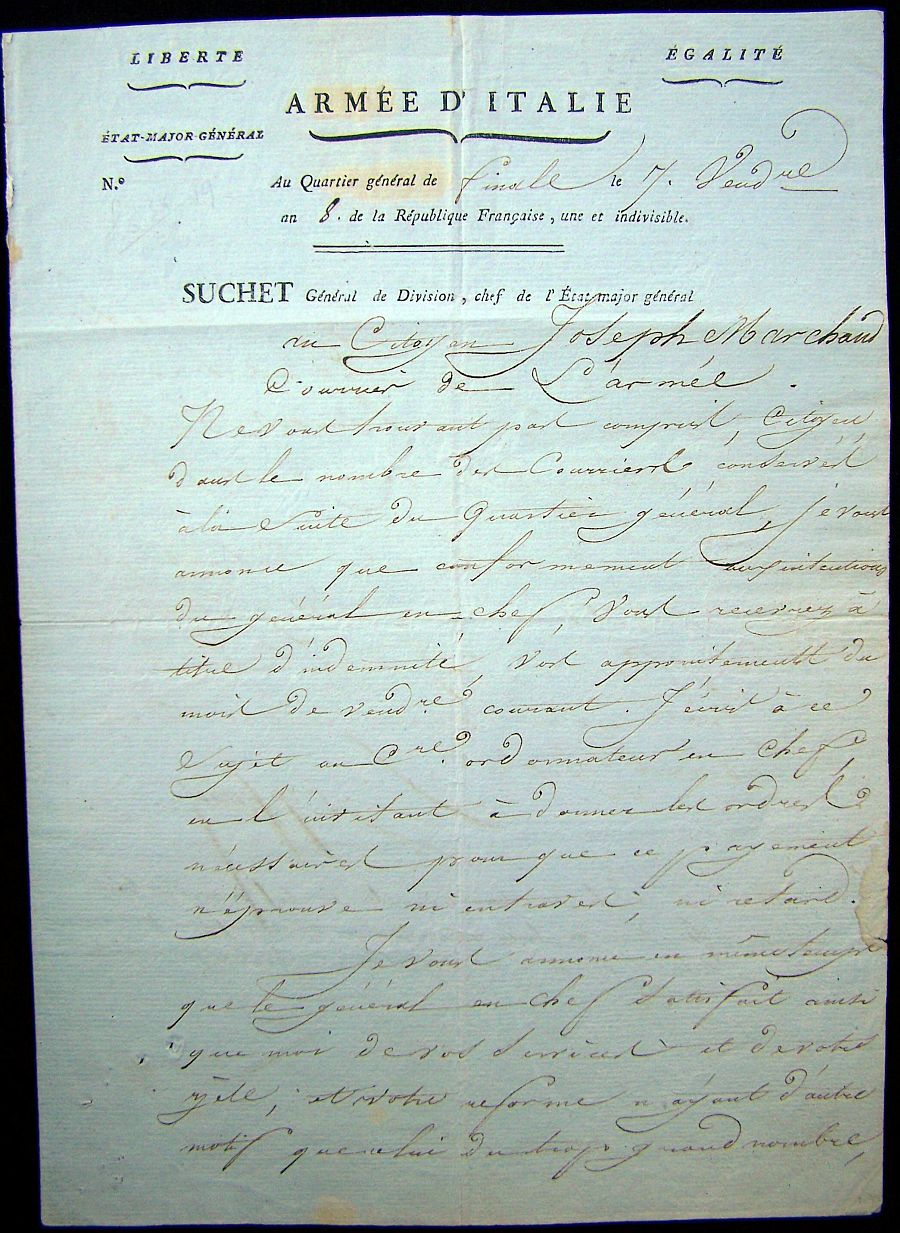 LIBERTE
ÉGALITÉ
ARMÉE D'ITALIE
ÉTAT-MAJOR GÉNÉRAL
N.º
Au Quartier général de finale le 7. Vendre
an 8. de la République Française, une et indivisible.
SUCHET Général de Division, chef de l'État-major général
au Citoyen Joseph Marchand
Courrier de L'armée.
Ne vous trouvant pas compris, Citoyen,
dans le nombre des Courriers conservés
à la Suite du Quartier général, je vous
annonce que conformément aux intentions
du général en chef, vous recevrez à
titre d'indemnité, vos appointements du
mois de vendre courant. J'écris à ce
Sujet au Cre ordonnateur en Chef,
en l'invitant à donner les ordres
nécessaires pour que ce payement
n'éprouve ni entraves, ni retard.
Je vous annonce en même temps
que le général en chef satisfait ainsi
que moi de vos Services et de votre
zèle, et votre reforme n'ayant d'autre
motif que celui du trop grand nombre,